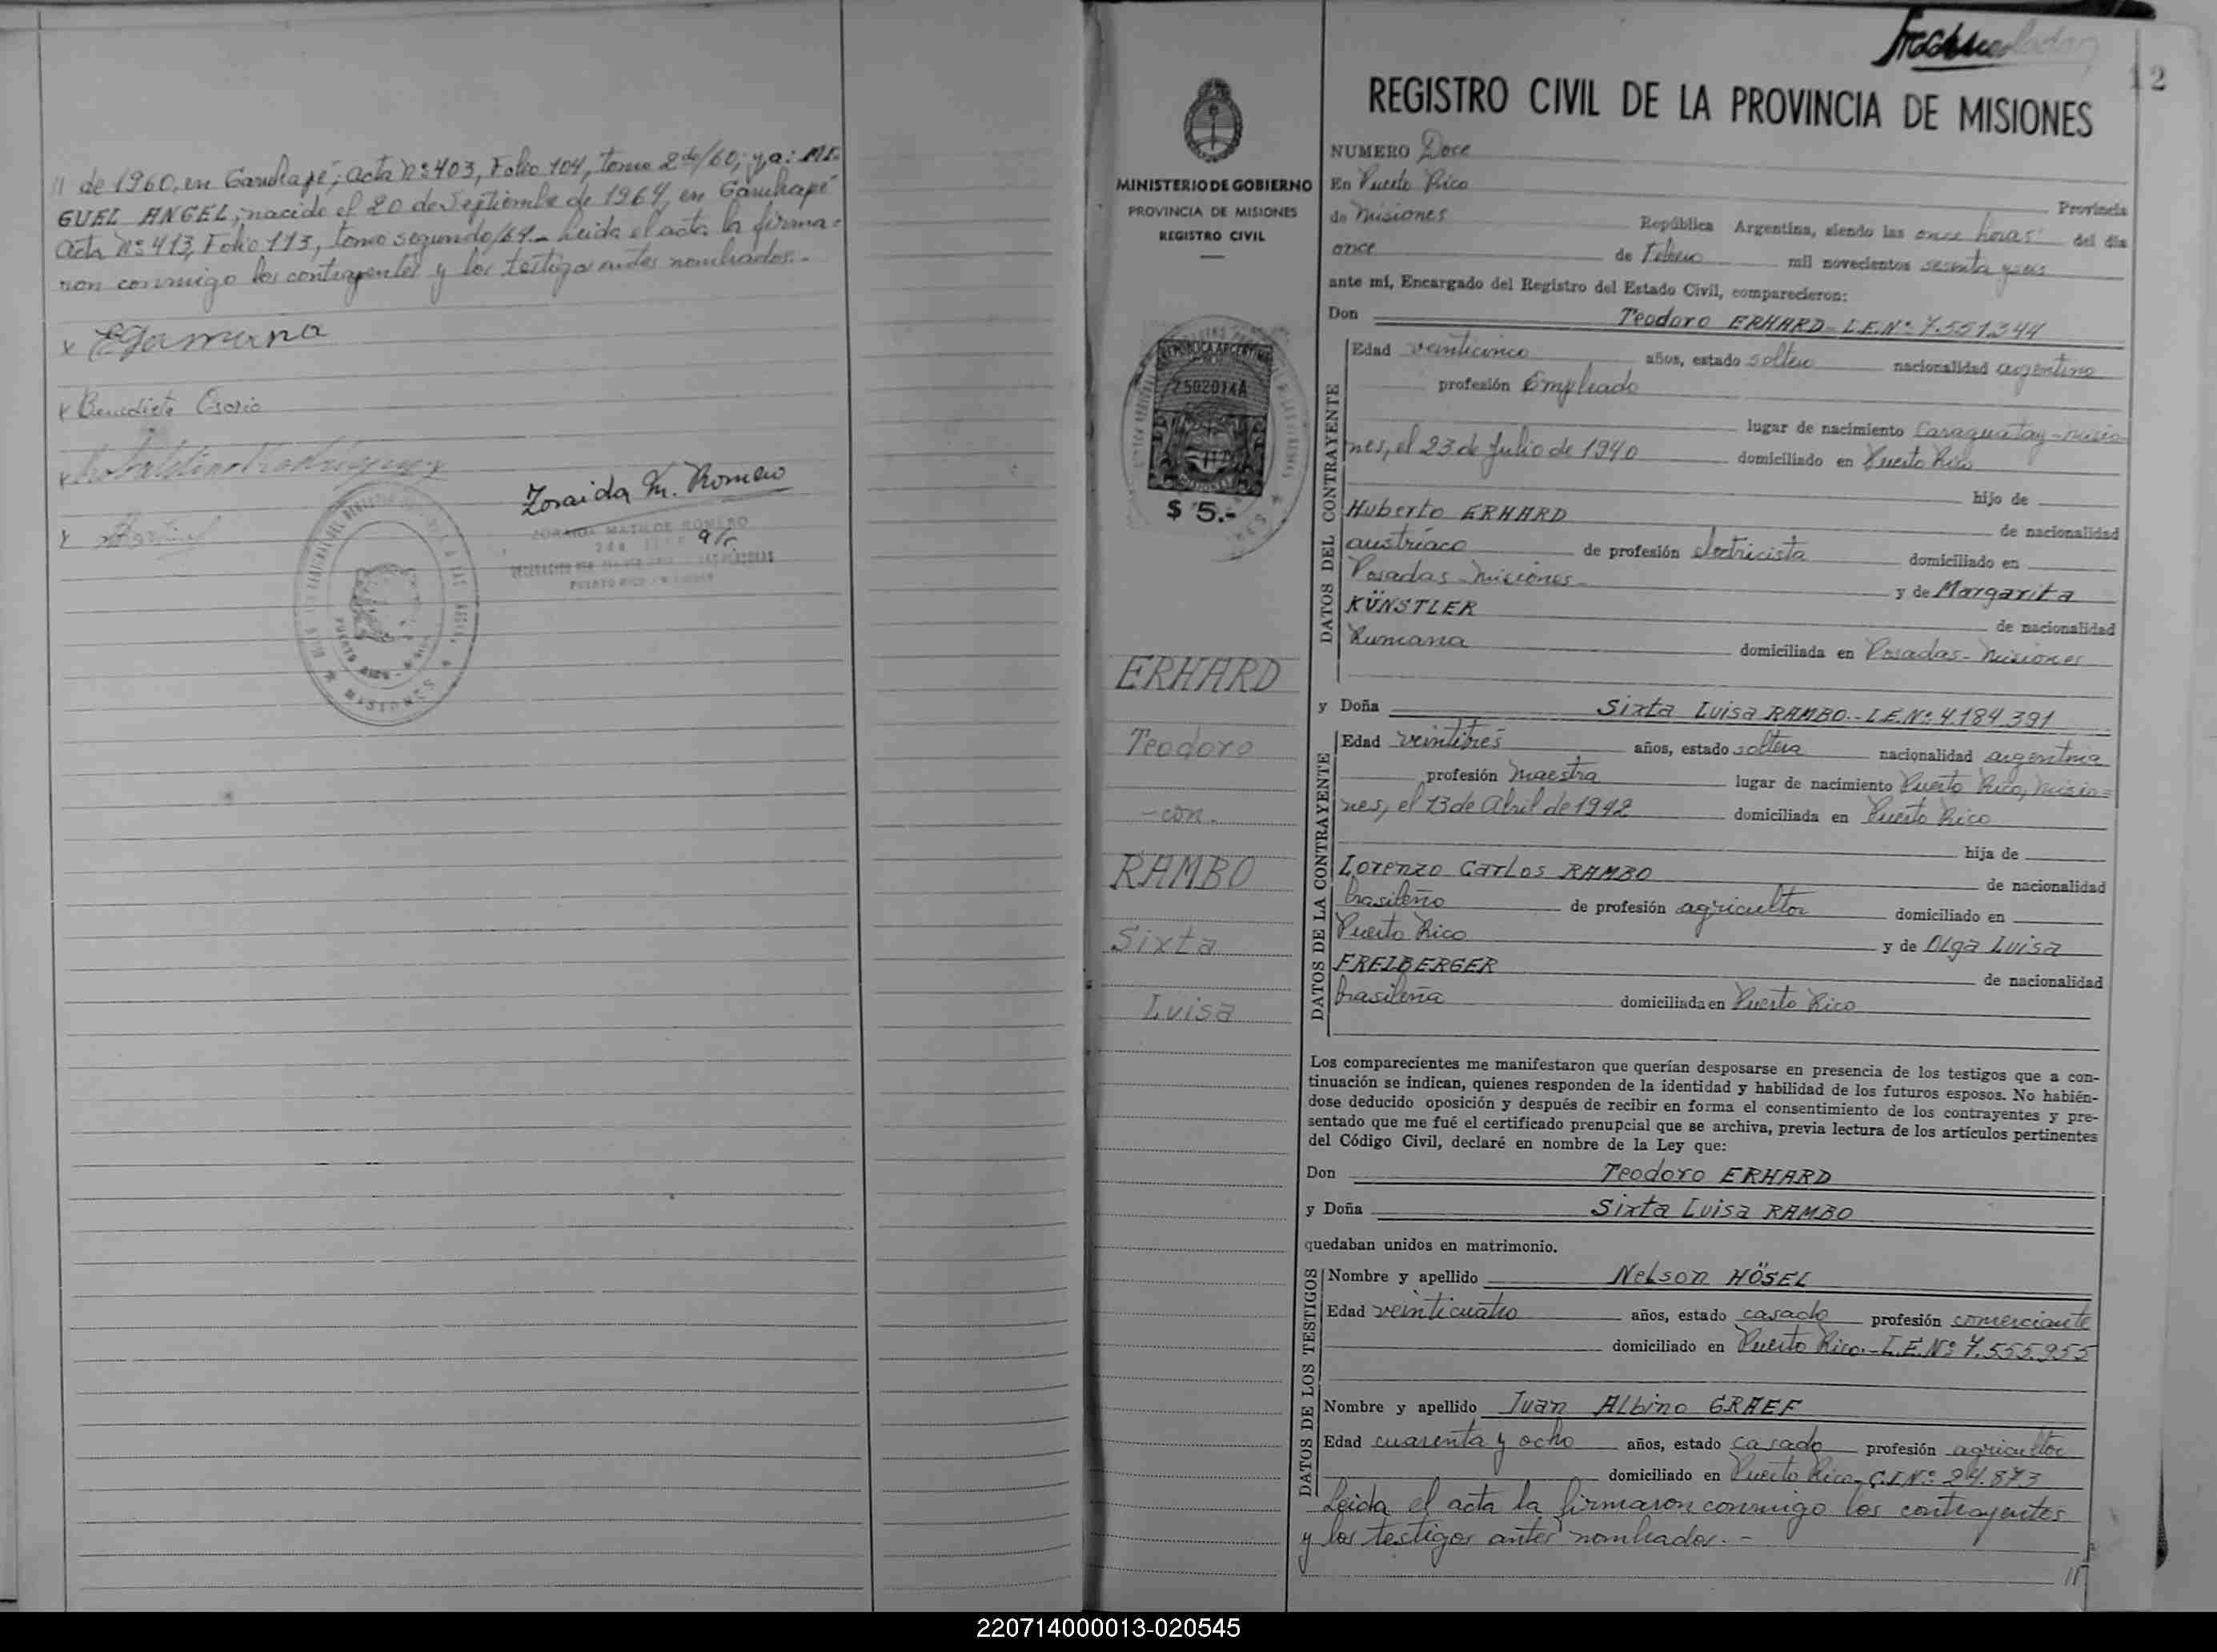 11 de 1960, en Garuhapé; acta nº 403, Folio 104, tomo 2do/60; y a: MI-
GUEL ANGEL, nacido el 20 de Septiembre de 1964, en Garuhapé
acta Nº 413, Folio 113, tomo segundo/64.- Leida el acta la firma=
ron conmigo los contrayentes y los testigos antes nombrados.-
x
x Benedicto Osorio
x
x
Zoraida M. Romero
ZORAIDA MATILDE ROMERO
PUERTO RICO - MISIONES
MISIONES
12
MINISTERIO DE GOBIERNO
PROVINCIA DE MISIONES
REGISTRO CIVIL
REPUBLICA ARGENTINA
2502014A
$ 5.-
ERHARD
Teodoro
-con-
RAMBO
Sixta
Luisa
REGISTRO CIVIL DE LA PROVINCIA DE MISIONES
NUMERO Doce
En Puerto Rico Provincia
de Misiones República Argentina, siendo las once horas del día
once de Febrero mil novecientos sesenta y seis
ante mí, Encargado del Registro del Estado Civil, comparecieron:
Don Teodoro ERHARD - L.E.Nº 7.551.344
DATOS DEL CONTRAYENTE
Edad veinticinco años, estado soltero nacionalidad argentino
profesión Empleado
lugar de nacimiento Caraguatay-Misio-
nes, el 23 de Julio de 1940 domiciliado en Puerto Rico
hijo de
Huberto ERHARD de nacionalidad
austríaco de profesión electricista domiciliado en
Posadas-Misiones- y de Margarita
KÜNSTLER de nacionalidad
Rumana domiciliada en Posadas-Misiones
y Doña Sixta Luisa RAMBO.- L.E.Nº 4.184.391
DATOS DE LA CONTRAYENTE
Edad veintitrés años, estado soltera nacionalidad argentina
profesión Maestra lugar de nacimiento Puerto Rico, Misio=
nes, el 13 de Abril de 1942 domiciliada en Puerto Rico
hija de
Lorenzo Carlos RAMBO de nacionalidad
brasileño de profesión agricultor domiciliado en
Puerto Rico y de Olga Luisa
FREIBERGER de nacionalidad
brasileña domiciliada en Puerto Rico
Los comparecientes me manifestaron que querían desposarse en presencia de los testigos que a con-
tinuación se indican, quienes responden de la identidad y habilidad de los futuros esposos. No habién-
dose deducido oposición y después de recibir en forma el consentimiento de los contrayentes y pre-
sentado que me fué el certificado prenupcial que se archiva, previa lectura de los artículos pertinentes
del Código Civil, declaré en nombre de la Ley que:
Don Teodoro ERHARD
y Doña Sixta Luisa RAMBO
quedaban unidos en matrimonio.
DATOS DE LOS TESTIGOS
Nombre y apellido Nelson HÖSEL
Edad veinticuatro años, estado casado profesión comerciante
domiciliado en Puerto Rico.-L.E.Nº 7.555.955
Nombre y apellido Juan Albino GRAEF
Edad cuarenta y ocho años, estado casado profesión agricultor
domiciliado en Puerto Rico-C.I.Nº 24.873
Leida el acta la firmaron conmigo los contrayentes
y los testigos antes nombrados.-
11
220714000013-020545